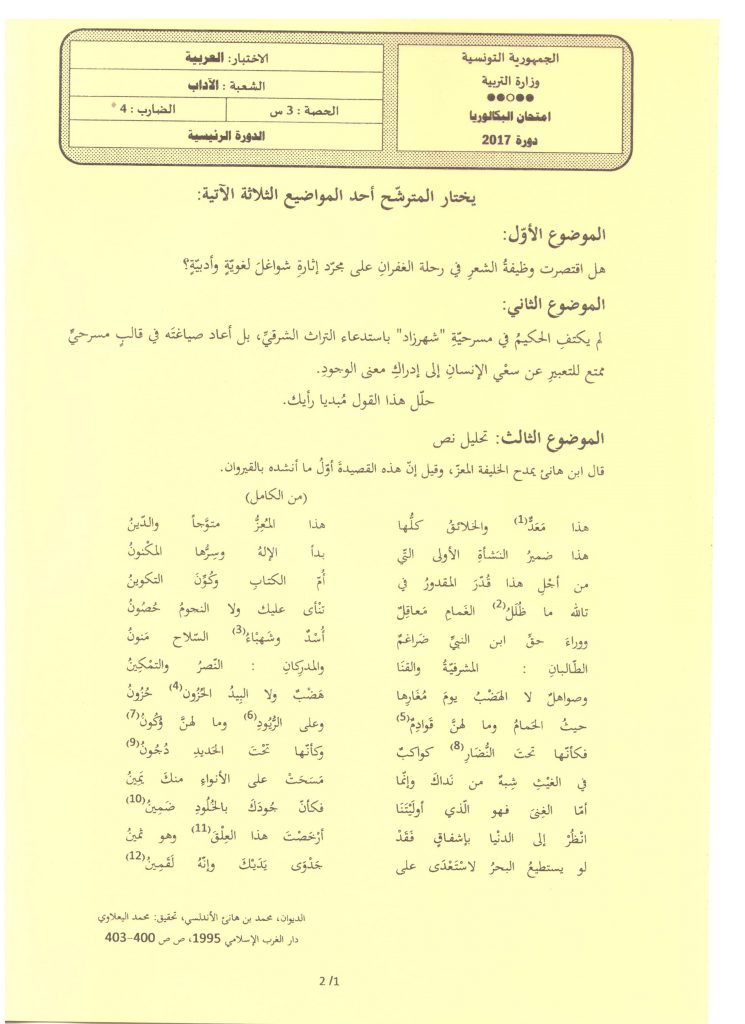 الجمهورية التونسية
وزارة التربية
●●○●●
امتحان البكالوريا
دورة 2017
الاختبار: العربية
الشعبة : الآداب
الحصة : 3 س
الضارب : 4
الدورة الرئيسية
يختار المترشّح أحد المواضيع الثلاثة الآتية:
الموضوع الأوّل:
هل اقتصرت وظيفةُ الشعرِ في رحلة الغفرانِ على مجرّد إثارةِ شواغلَ لغويّةٍ وأدبيّةٍ؟
الموضوع الثاني:
لم يكتفِ الحكيمُ في مسرحيّةِ "شهرزاد" باستدعاء التراث الشرقيِّ، بل أعاد صياغتَه في قالبٍ مسرحيٍّ
ممتع للتعبيرِ عن سعْي الإنسانِ إلى إدراكِ معنى الوجودِ.
حلّل هذا القول مُبديا رأيك.
الموضوع الثالث: تحليل نص
قال ابن هانئ يمدح الخليفة المعزّ، وقيل إنّ هذه القصيدةَ أوّلُ ما أنشده بالقيروان.
(من الكامل)
هذا مَعَدٌّ(1) والخلائقُ كلُّها هذا المُعِزُّ متوَّجاً والدّينُ
هذا ضميرُ النَشأةِ الأولى التّي بدأ الإلهُ وسِرُّها المكْنونُ
من أجْلِ هذا قُدّرَ المقدورُ في أُمّ الكتابِ وكُوِّنَ التكوينُ
تالله ما ظُلَلُ(2) الغَمامِ مَعاقِلٌ تنْأى عليك ولا النجومُ حُصُونُ
ووراءَ حقِّ ابن النبيِّ ضَراغمٌ أُسْدٌ وشَهبْاءُ(3) السّلاح مَنونُ
الطّالبانِ : المشرفيّةُ والقنَا والمدرِكانِ : النّصرُ والتمْكِينُ
وصواهلٌ لا الهَضْبُ يومَ مُغَارِها هَضْبٌ ولا البِيدُ الحُزُون(4) حُزُونُ
حيثُ الحَمامُ وما لهنَّ قَوادِمٌ(5) وعلى الرُّيُودِ(6) وما لهنَّ وُكُونُ(7)
فكأنّها تحتَ النُّضَارِ(8) كواكبٌ وكأنّها تحْتَ الحَديدِ دُجُونُ(9)
في الغيْثِ شِبهٌ من نَداكَ وإنّما مَسَحَتْ على الأنواءِ منكَ يَمِينُ
أمّا الغِنَى فهو الّذي أَوليْتَنَا فكأنّ جُودَكَ بالخُلُودِ ضَمِينُ(10)
انْظُرْ إلى الدنْيا بإشفاقٍ فَقَدْ أرْخَصْتَ هذا العِلْقَ(11) وهو ثمينُ
لو يستطيعُ البحرُ لاسْتَعْدَى على جَدْوَى يَدَيْكَ وإنّهُ لَقَمِينُ(12)
الديوان، محمد بن هانئ الأندلسي، تحقيق: محمد اليعلاوي
دار الغرب الإسلامي 1995، ص ص 400-403
2 /1